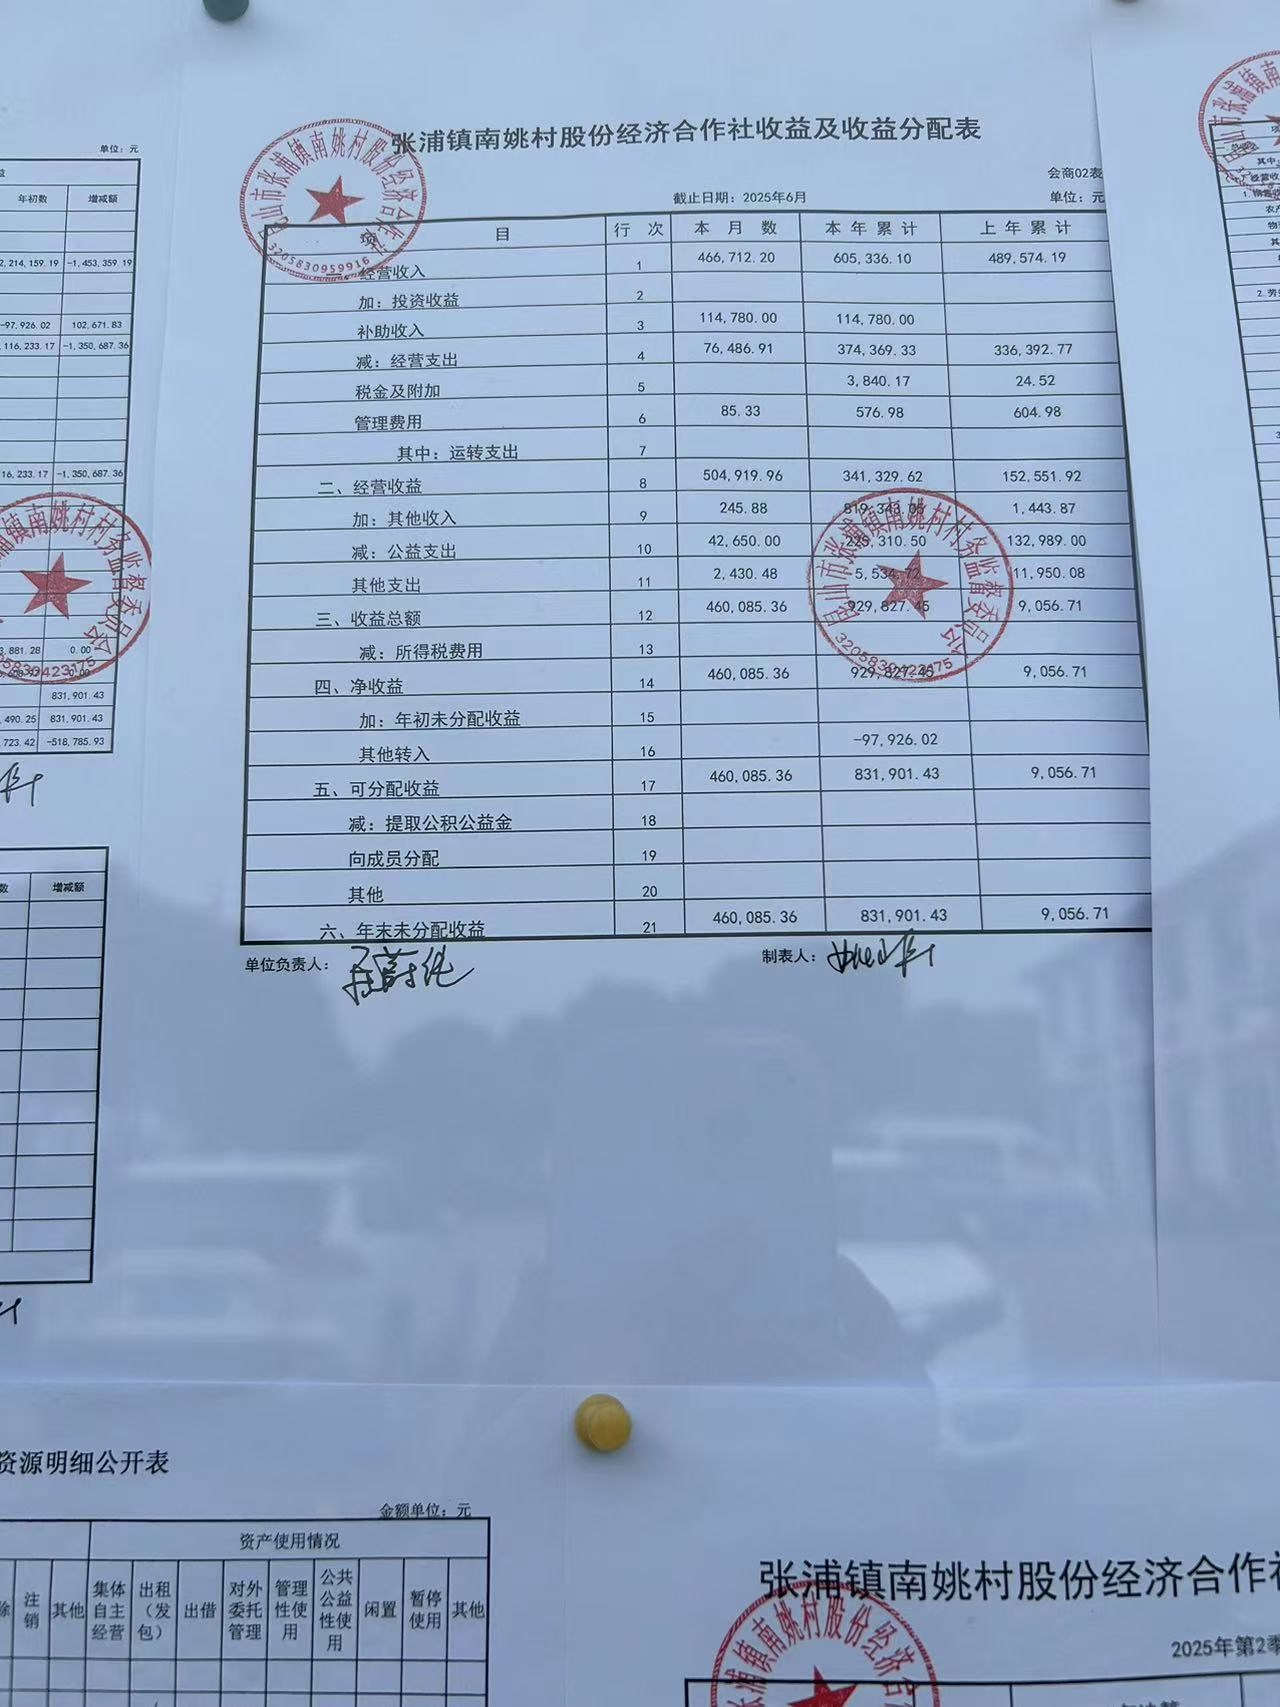 单位：元
年初数 增减额
2,214,159.19 -1,453,359.19
-97,926.02 102,671.83
,116,233.17 -1,350,687.36
16,233.17 -1,350,687.36
3,881.28 0.00
831,901.43
,490.25 831,901.43
723.42 -518,785.93
数 增减额
张浦镇南姚村股份经济合作社收益及收益分配表
会商02表
截止日期：2025年6月 单位：元
项 目 行 次 本 月 数 本 年 累 计 上 年 累 计
一、经营收入 1 466,712.20 605,336.10 489,574.19
加：投资收益 2
补助收入 3 114,780.00 114,780.00
减：经营支出 4 76,486.91 374,369.33 336,392.77
税金及附加 5 3,840.17 24.52
管理费用 6 85.33 576.98 604.98
其中：运转支出 7
二、经营收益 8 504,919.96 341,329.62 152,551.92
加：其他收入 9 245.88 819,343.05 1,443.87
减：公益支出 10 42,650.00 225,310.50 132,989.00
其他支出 11 2,430.48 5,534.72 11,950.08
三、收益总额 12 460,085.36 929,827.45 9,056.71
减：所得税费用 13
四、净收益 14 460,085.36 929,827.45 9,056.71
加：年初未分配收益 15
其他转入 16 -97,926.02
五、可分配收益 17 460,085.36 831,901.43 9,056.71
减：提取公积公益金 18
向成员分配 19
其他 20
六、年末未分配收益 21 460,085.36 831,901.43 9,056.71
单位负责人： 制表人：
昆山市张浦镇南姚村股份经济合作社
3205830959916
昆山市张浦镇南姚村村务监督委员会
3205830423175
浦镇南姚村村务监督委员会
05830423175
其中
经营收
2.劳
资源明细公开表
金额单位：元
资产使用情况
注销 其他 集体自主经营 出租（发包） 出借 对外委托管理 管理性使用 公共公益性使用 闲置 暂停使用 其他
张浦镇南姚村股份经济合作社
2025年第2季
张浦镇南姚村股份经济合